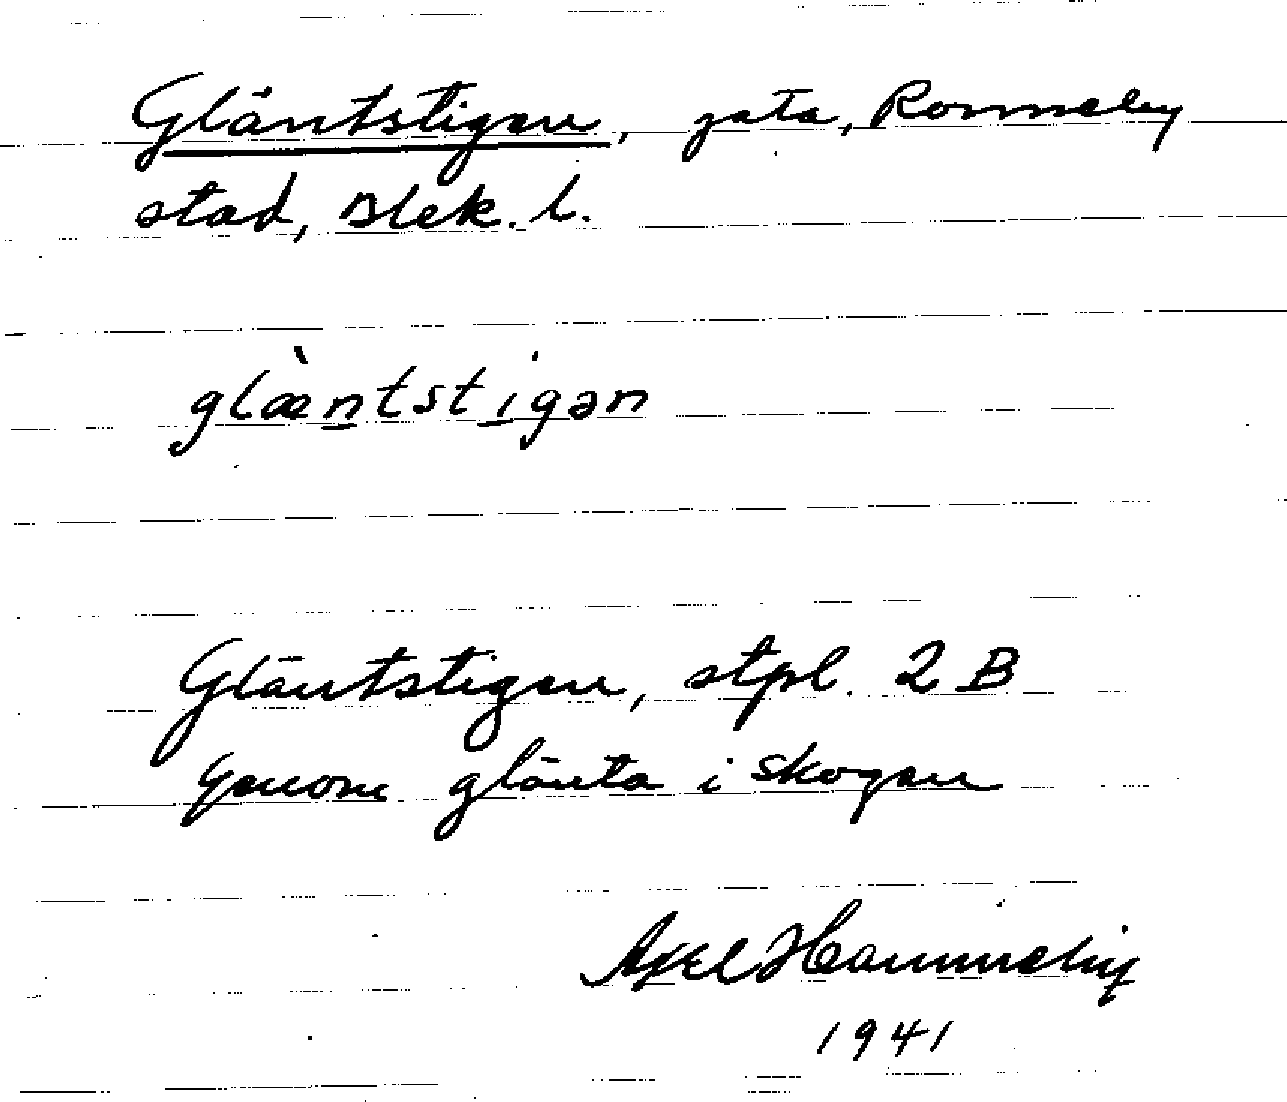 Gläntstigen, gata, Ronneby
stad, Blek. l.
glæ̀ntstigən
Gläntstigen, stpl. 2 B
Genom glänta i skogen
Axel Hammneby
1941